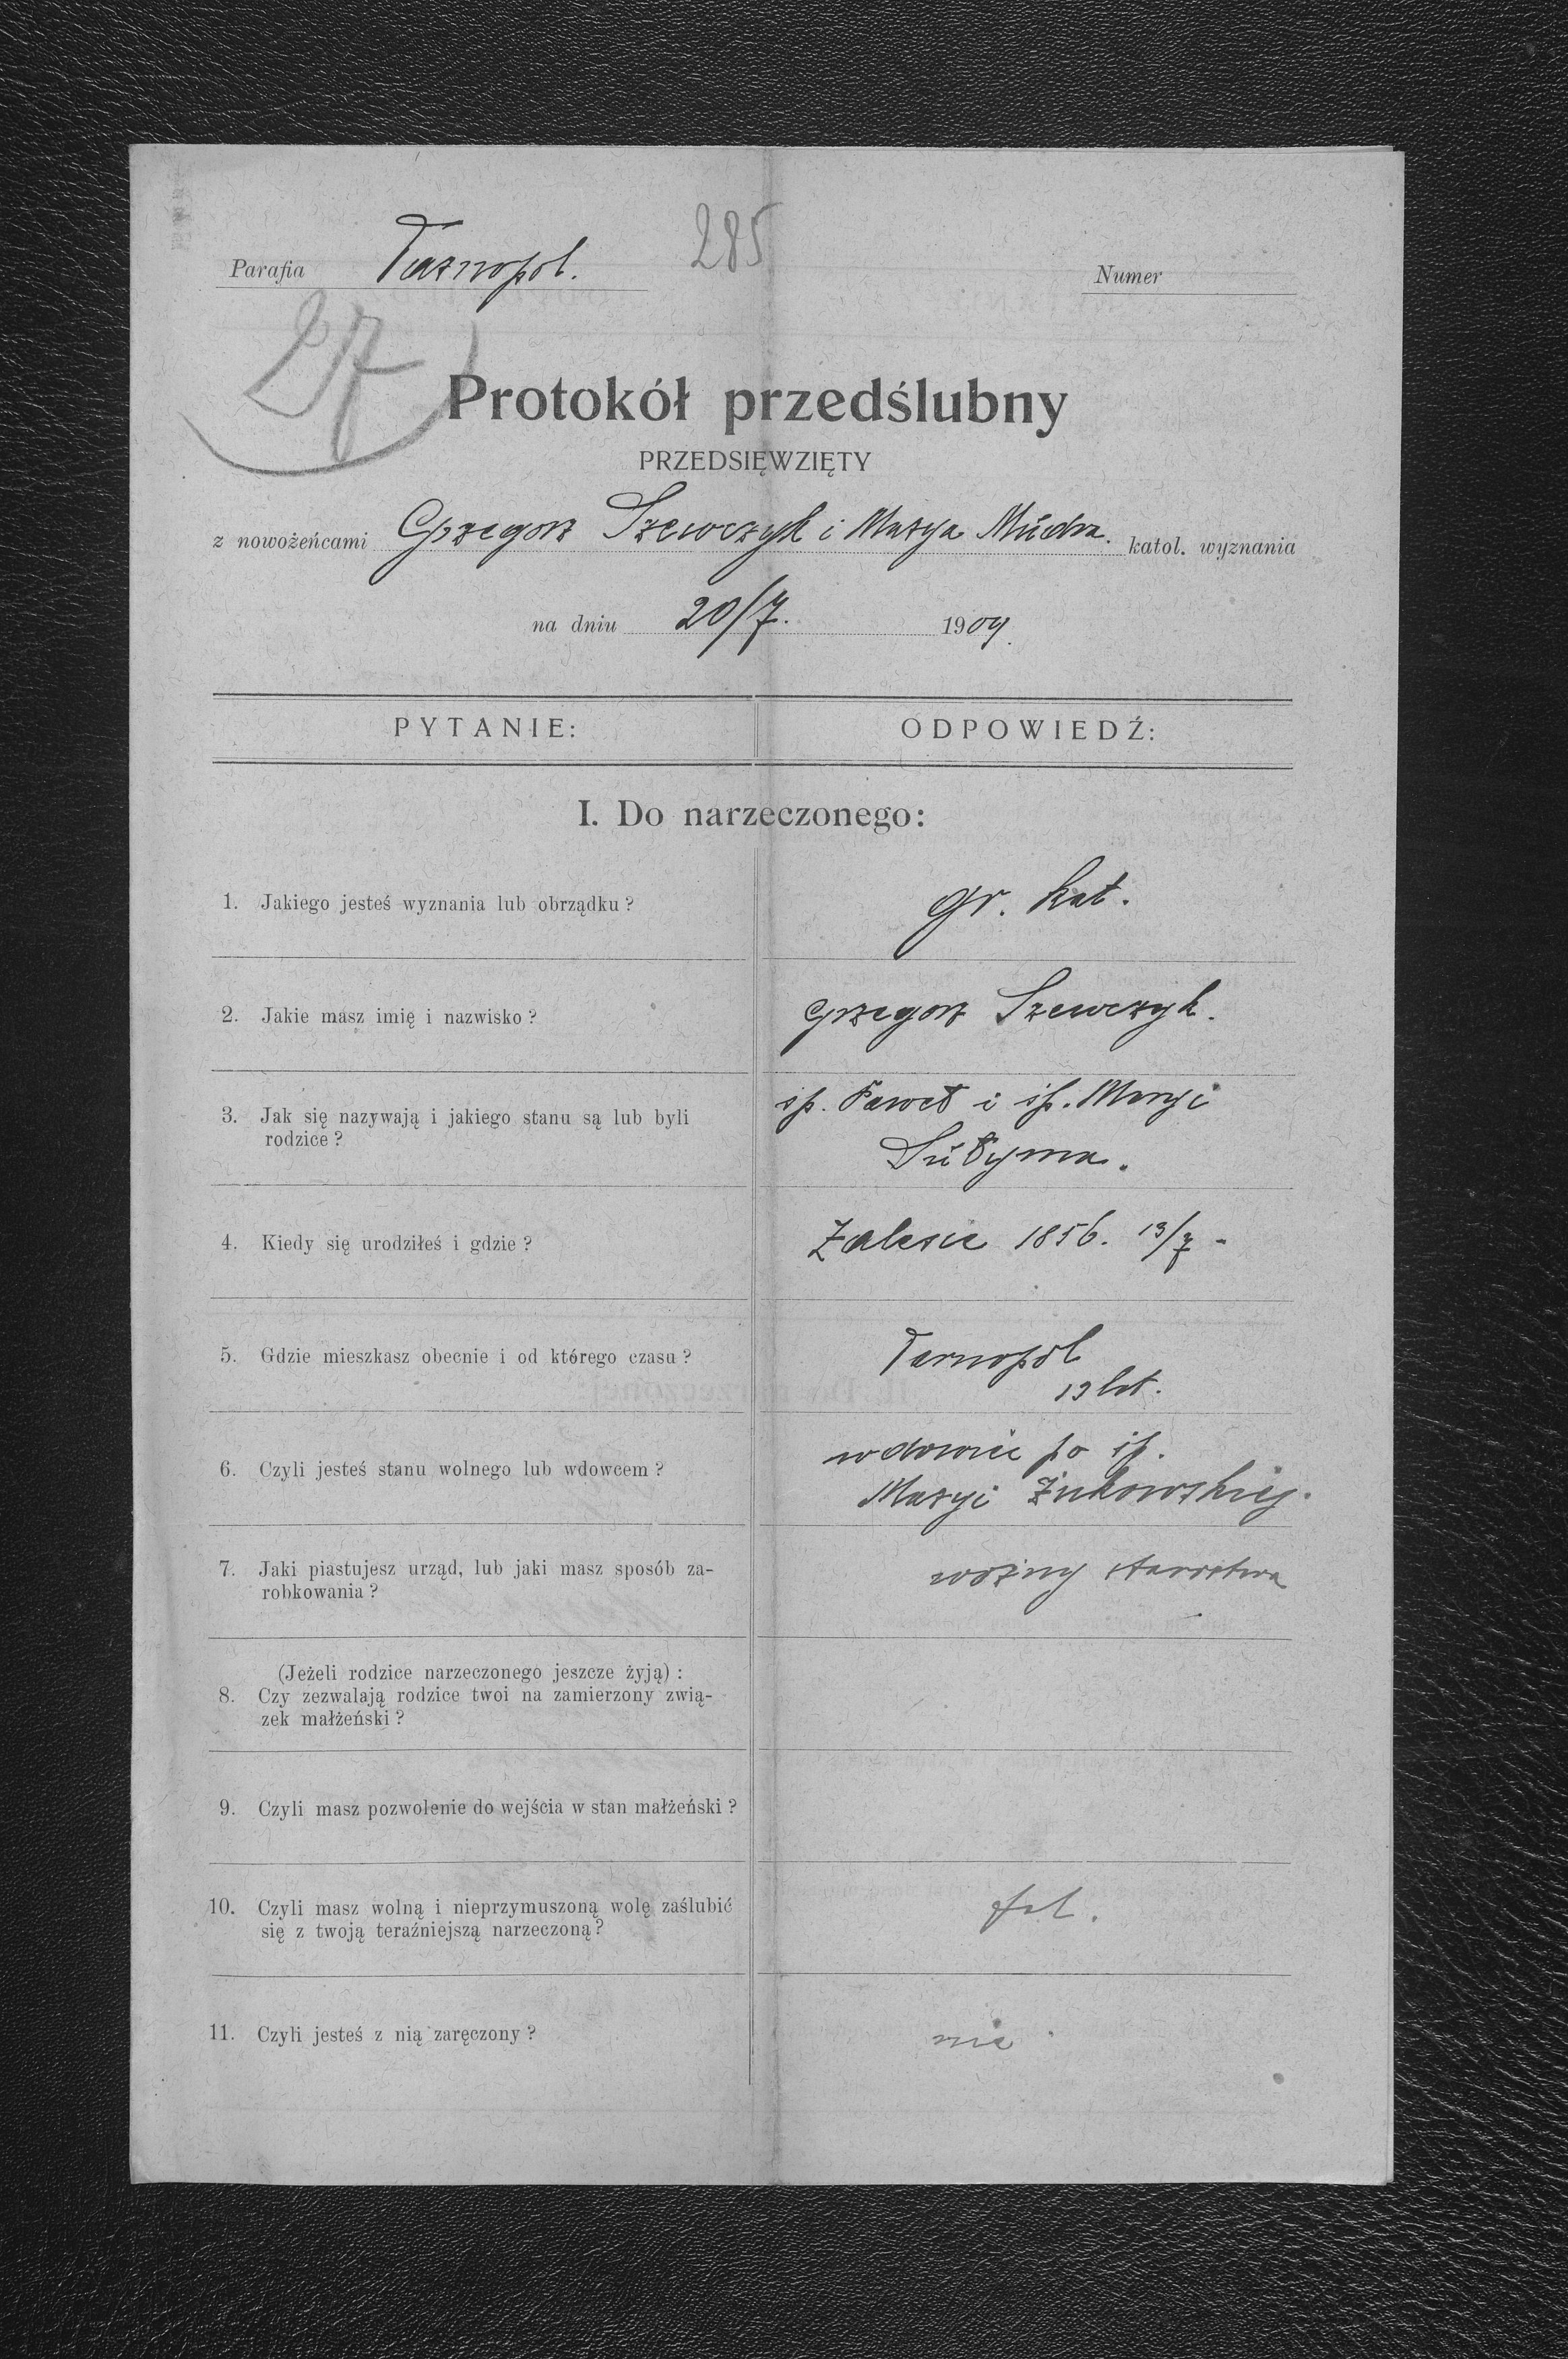 285
Parafia Tarnopol. Numer
27
Protokół przedślubny
PRZEDSIĘWZIĘTY
z nowożeńcami Grzegorz Szewczyk i Marya Mudra. katol. wyznania
na dniu 20/7. 1909.
PYTANIE: ODPOWIEDŹ:
I. Do narzeczonego:
1. Jakiego jesteś wyznania lub obrządku? gr. kat.
2. Jakie masz imię i nazwisko? Grzegorz Szewczyk.
3. Jak się nazywają i jakiego stanu są lub byli
rodzice?
śp. Paweł i śp. Maryi
4. Kiedy się urodziłeś i gdzie? Zalesie 1856. 13/7 -
5. Gdzie mieszkasz obecnie i od którego czasu? Tarnopol
13 lat.
6. Czyli jesteś stanu wolnego lub wdowcem? wdowiec po śp.
Maryi Żukowskiej.
7. Jaki piastujesz urząd, lub jaki masz sposób za-
robkowania?
woźny starostwa
(Jeżeli rodzice narzeczonego jeszcze żyją):
8. Czy zezwalają rodzice twoi na zamierzony zwią-
zek małżeński?
9. Czyli masz pozwolenie do wejścia w stan małżeński?
10. Czyli masz wolną i nieprzymuszoną wolę zaślubić
się z twoją teraźniejszą narzeczoną?
11. Czyli jesteś z nią zaręczony? nie